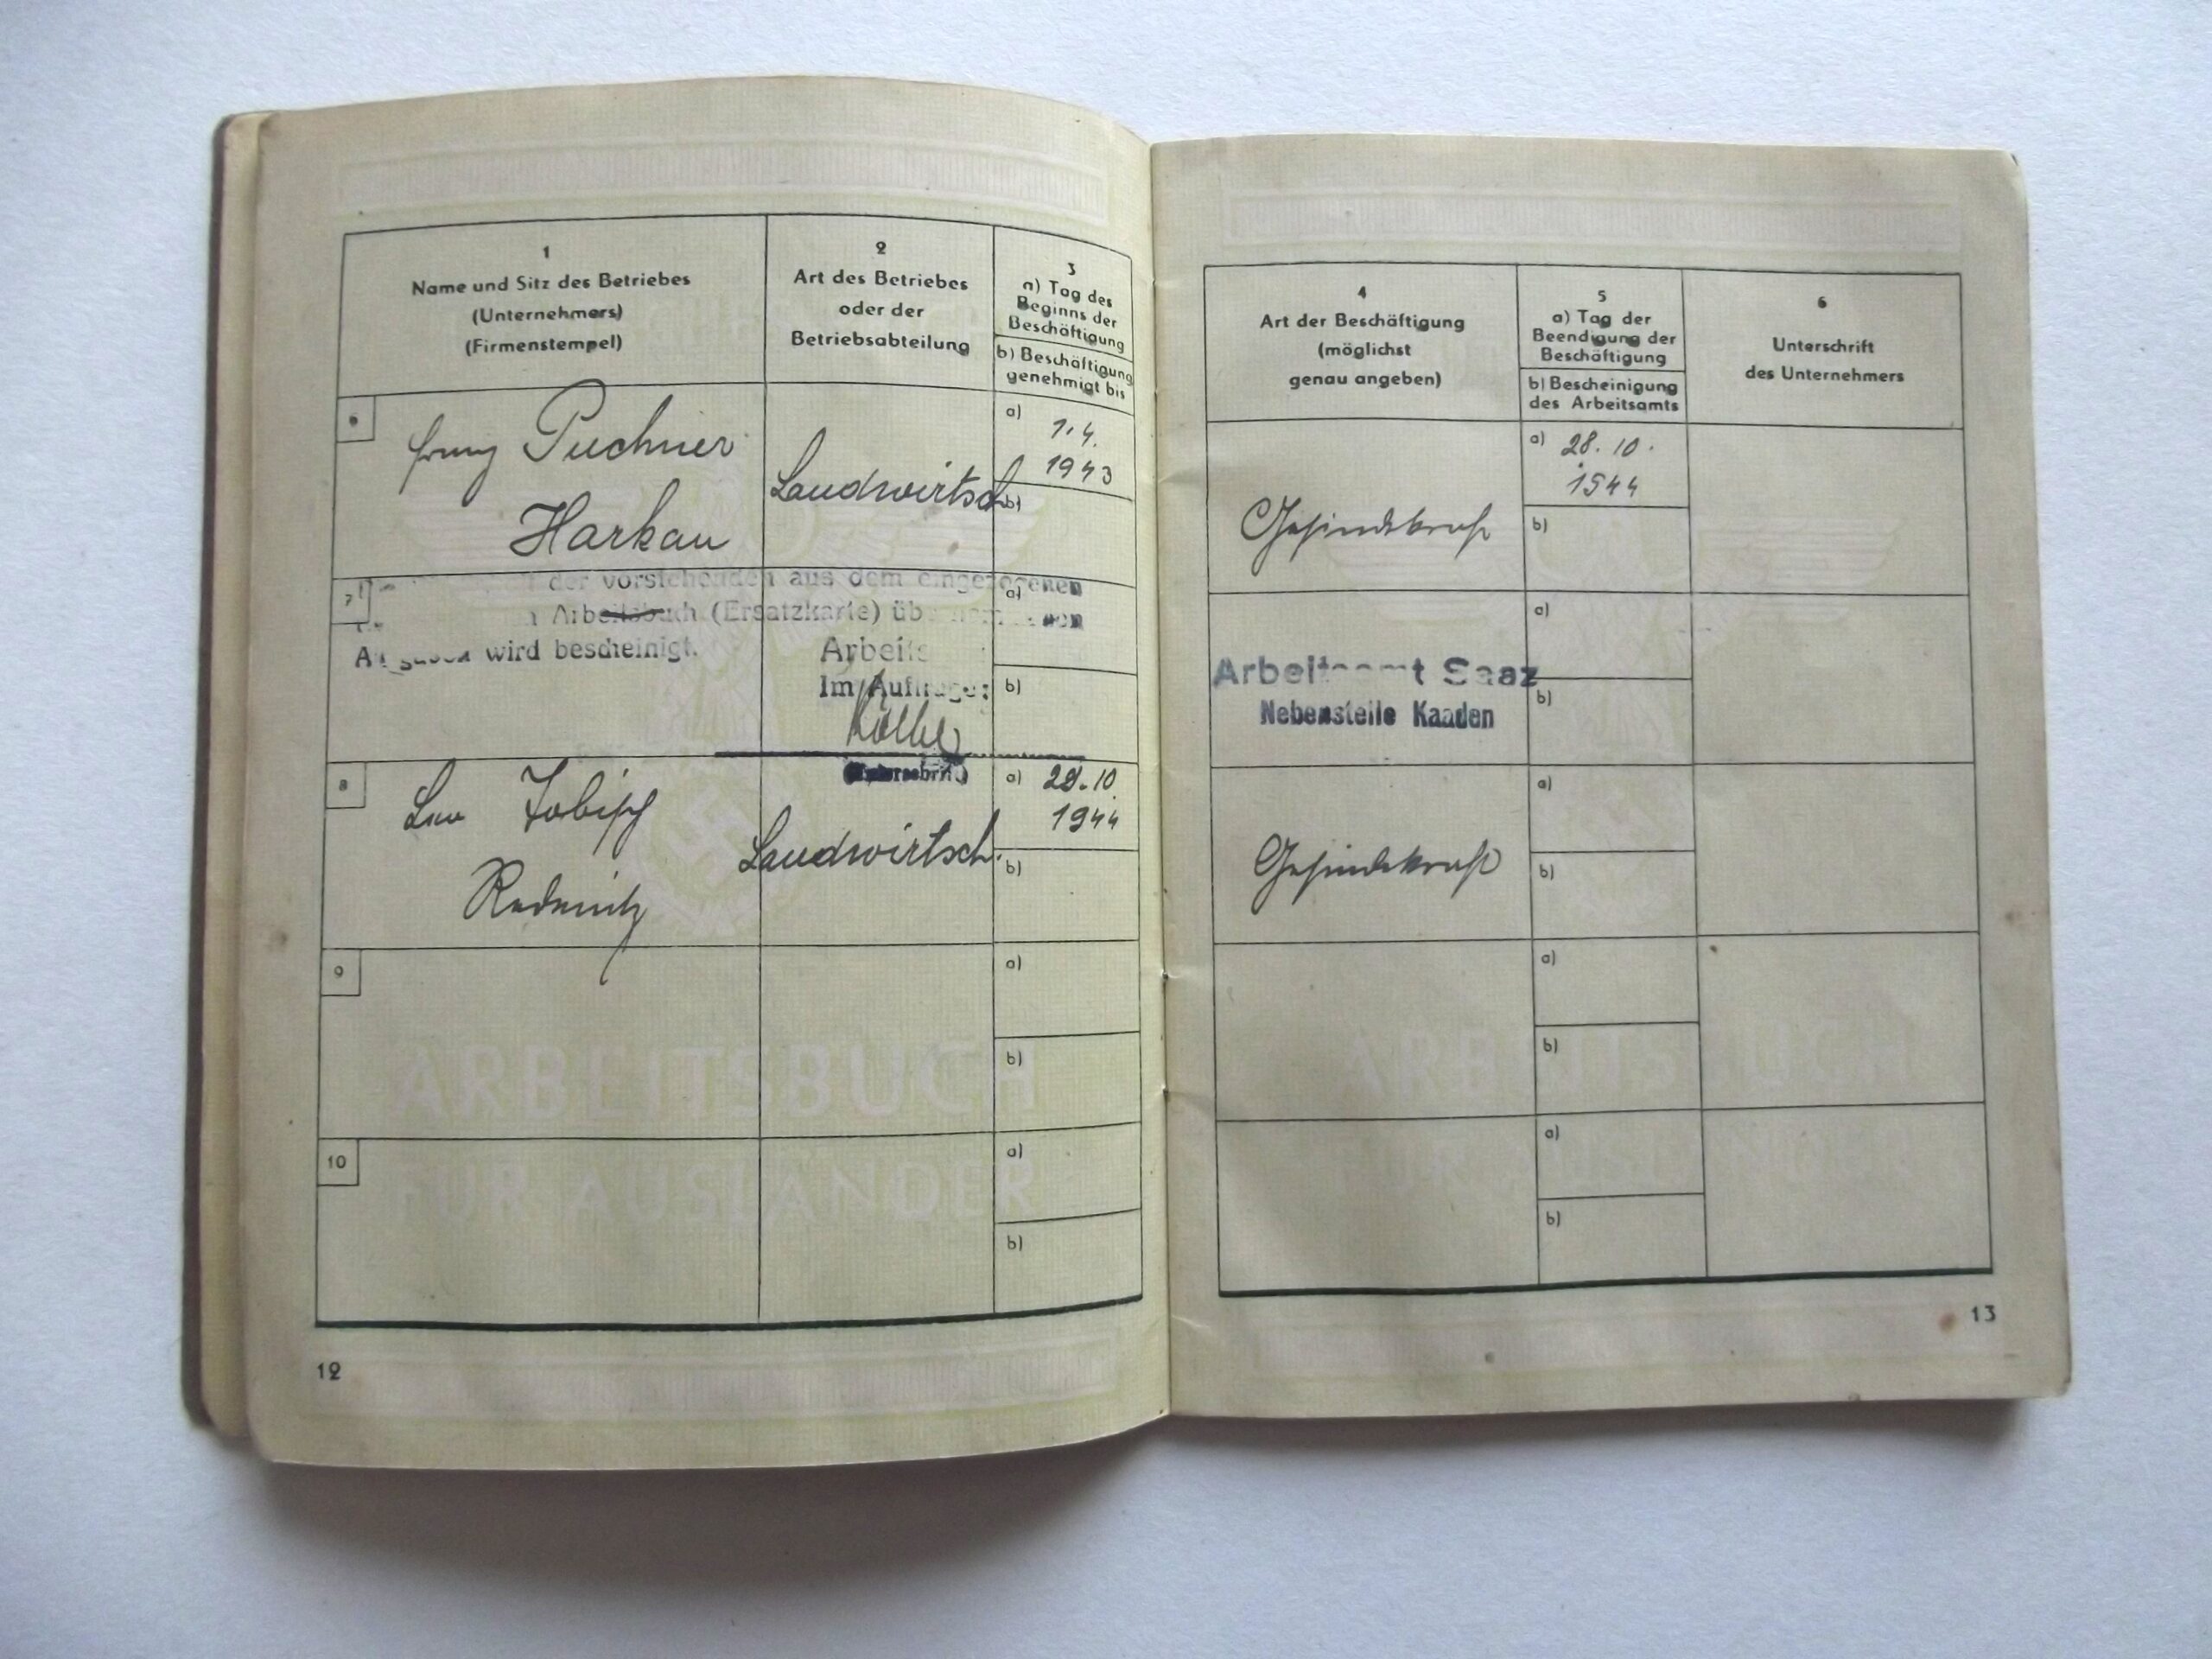 1
Name und Sitz des Betriebes
(Unternehmers)
(Firmenstempel)
2
Art des Betriebes
oder der
Betriebsabteilung
3
a) Tag des
Beginns der
Beschäftigung
b) Beschäftigung
genehmigt bis
6
Franz Puchner
Harkau
Landwirtsch
a) 1.4.
1943
b)
7
der vorstehenden aus dem eingezogenen
Arbeitsbuch (Ersatzkarte) übernommenen
Angaben wird bescheinigt.
Arbeits
Im Auftrage:
(Unterschrift)
a)
b)
8
Tobisch
Radonitz
Landwirtsch.
a) 29.10
1944
b)
9
a)
b)
10
a)
b)
ARBEITSBUCH
FÜR AUSLÄNDER
12
4
Art der Beschäftigung
(möglichst
genau angeben)
5
a) Tag der
Beendigung der
Beschäftigung
b) Bescheinigung
des Arbeitsamts
6
Unterschrift
des Unternehmers
Gesindekraft
a) 28.10.
1944
b)
Arbeitsamt Saaz
Nebenstelle Kaaden
a)
b)
Gesindekraft
a)
b)
a)
b)
a)
b)
ARBEITSBUCH
FÜR AUSLÄNDER
13